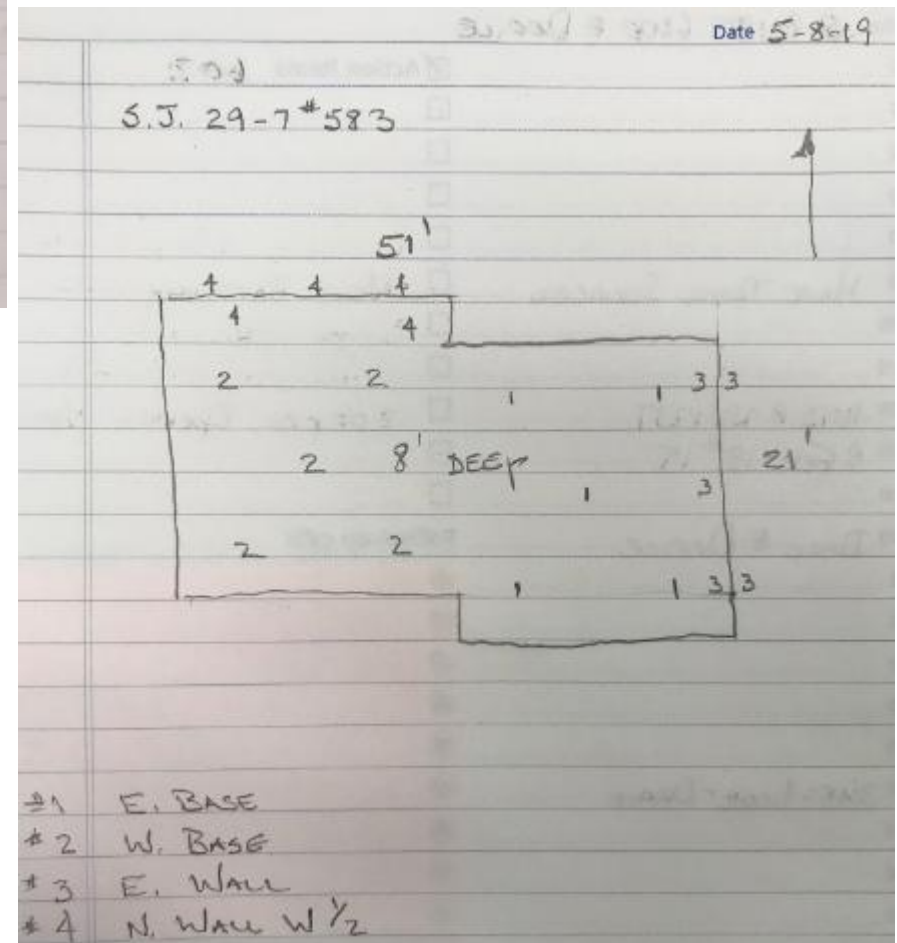 Date 5-8-19
S.J. 29-7 #583
51'
4 4 4
4 4
2 2 1 1 3 3
2 8' DEEP 21'
1 3
2 2
1 1 3 3
#1 E. BASE
#2 W. BASE
#3 E. WALL
#4 N. WALL W 1/2